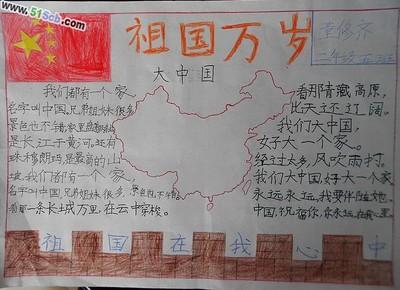 www.51Scb.com
祖国万岁
董修齐
二年级五班
大中国
我们都有一个家
名字叫中国。兄弟姐妹很多
景色也不错,家里盘
是长江于黄河。还有
珠穆朗玛是最高的山
坡。我们都有一个家
名字叫中国,兄弟姐妹很多,景色也不错
看那一条长城万里,在云中穿梭。
看那青藏高原,
比天还辽阔。
我们大中国,
好大一个家。
经过太多,风吹雨打。
我们大中国,好大一个家
永远永远,我要伴随她。
中国,祝福你,你永远在我心里
祖国在我心中